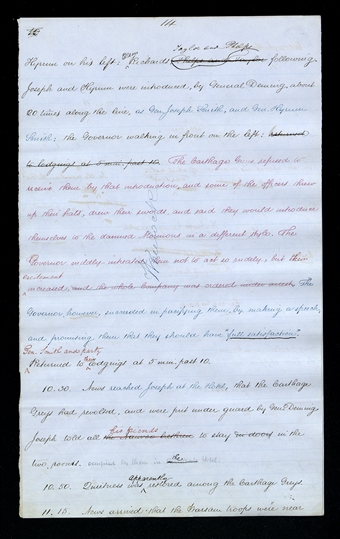 114
Taylor and Phelps
Hyrum on his left: Richards following.
Joseph and Hyrum were introduced, by General Deming, about
20 times along the line, as Gen. Joseph Smith, and Gen Hyrum
Smith: the Governor walking in front on the left: returned
to lodgings at 5 min. past 10. The Carthage Greys refused to
receive them by that introduction, and some of the officers threw
up their hats, drew their swords, and said they would introduce
themselves to the damned Mormons in a different style. The
Governor mildly intreated them not to act so rudely, but their
excitement
increased, and the whole company was ordered under arrest. The
Governor, however, succeeded in pacifying them, by making a speech,
and promising them that they should have "full satisfaction".
Gen. Smith and party
Returned to their lodgings at 5 min. past 10.
10.30. News reached Joseph at the Hotel, that the Carthage
Greys had revolted, and were put under guard by Gen. Deming
his friends
Joseph told all to stay in doors in the
two rooms. occupied by them in the Hotel.
apparently
10.50. Quietness was restored among the Carthage Greys.
11.15. News arrived that the Warsaw troops were near